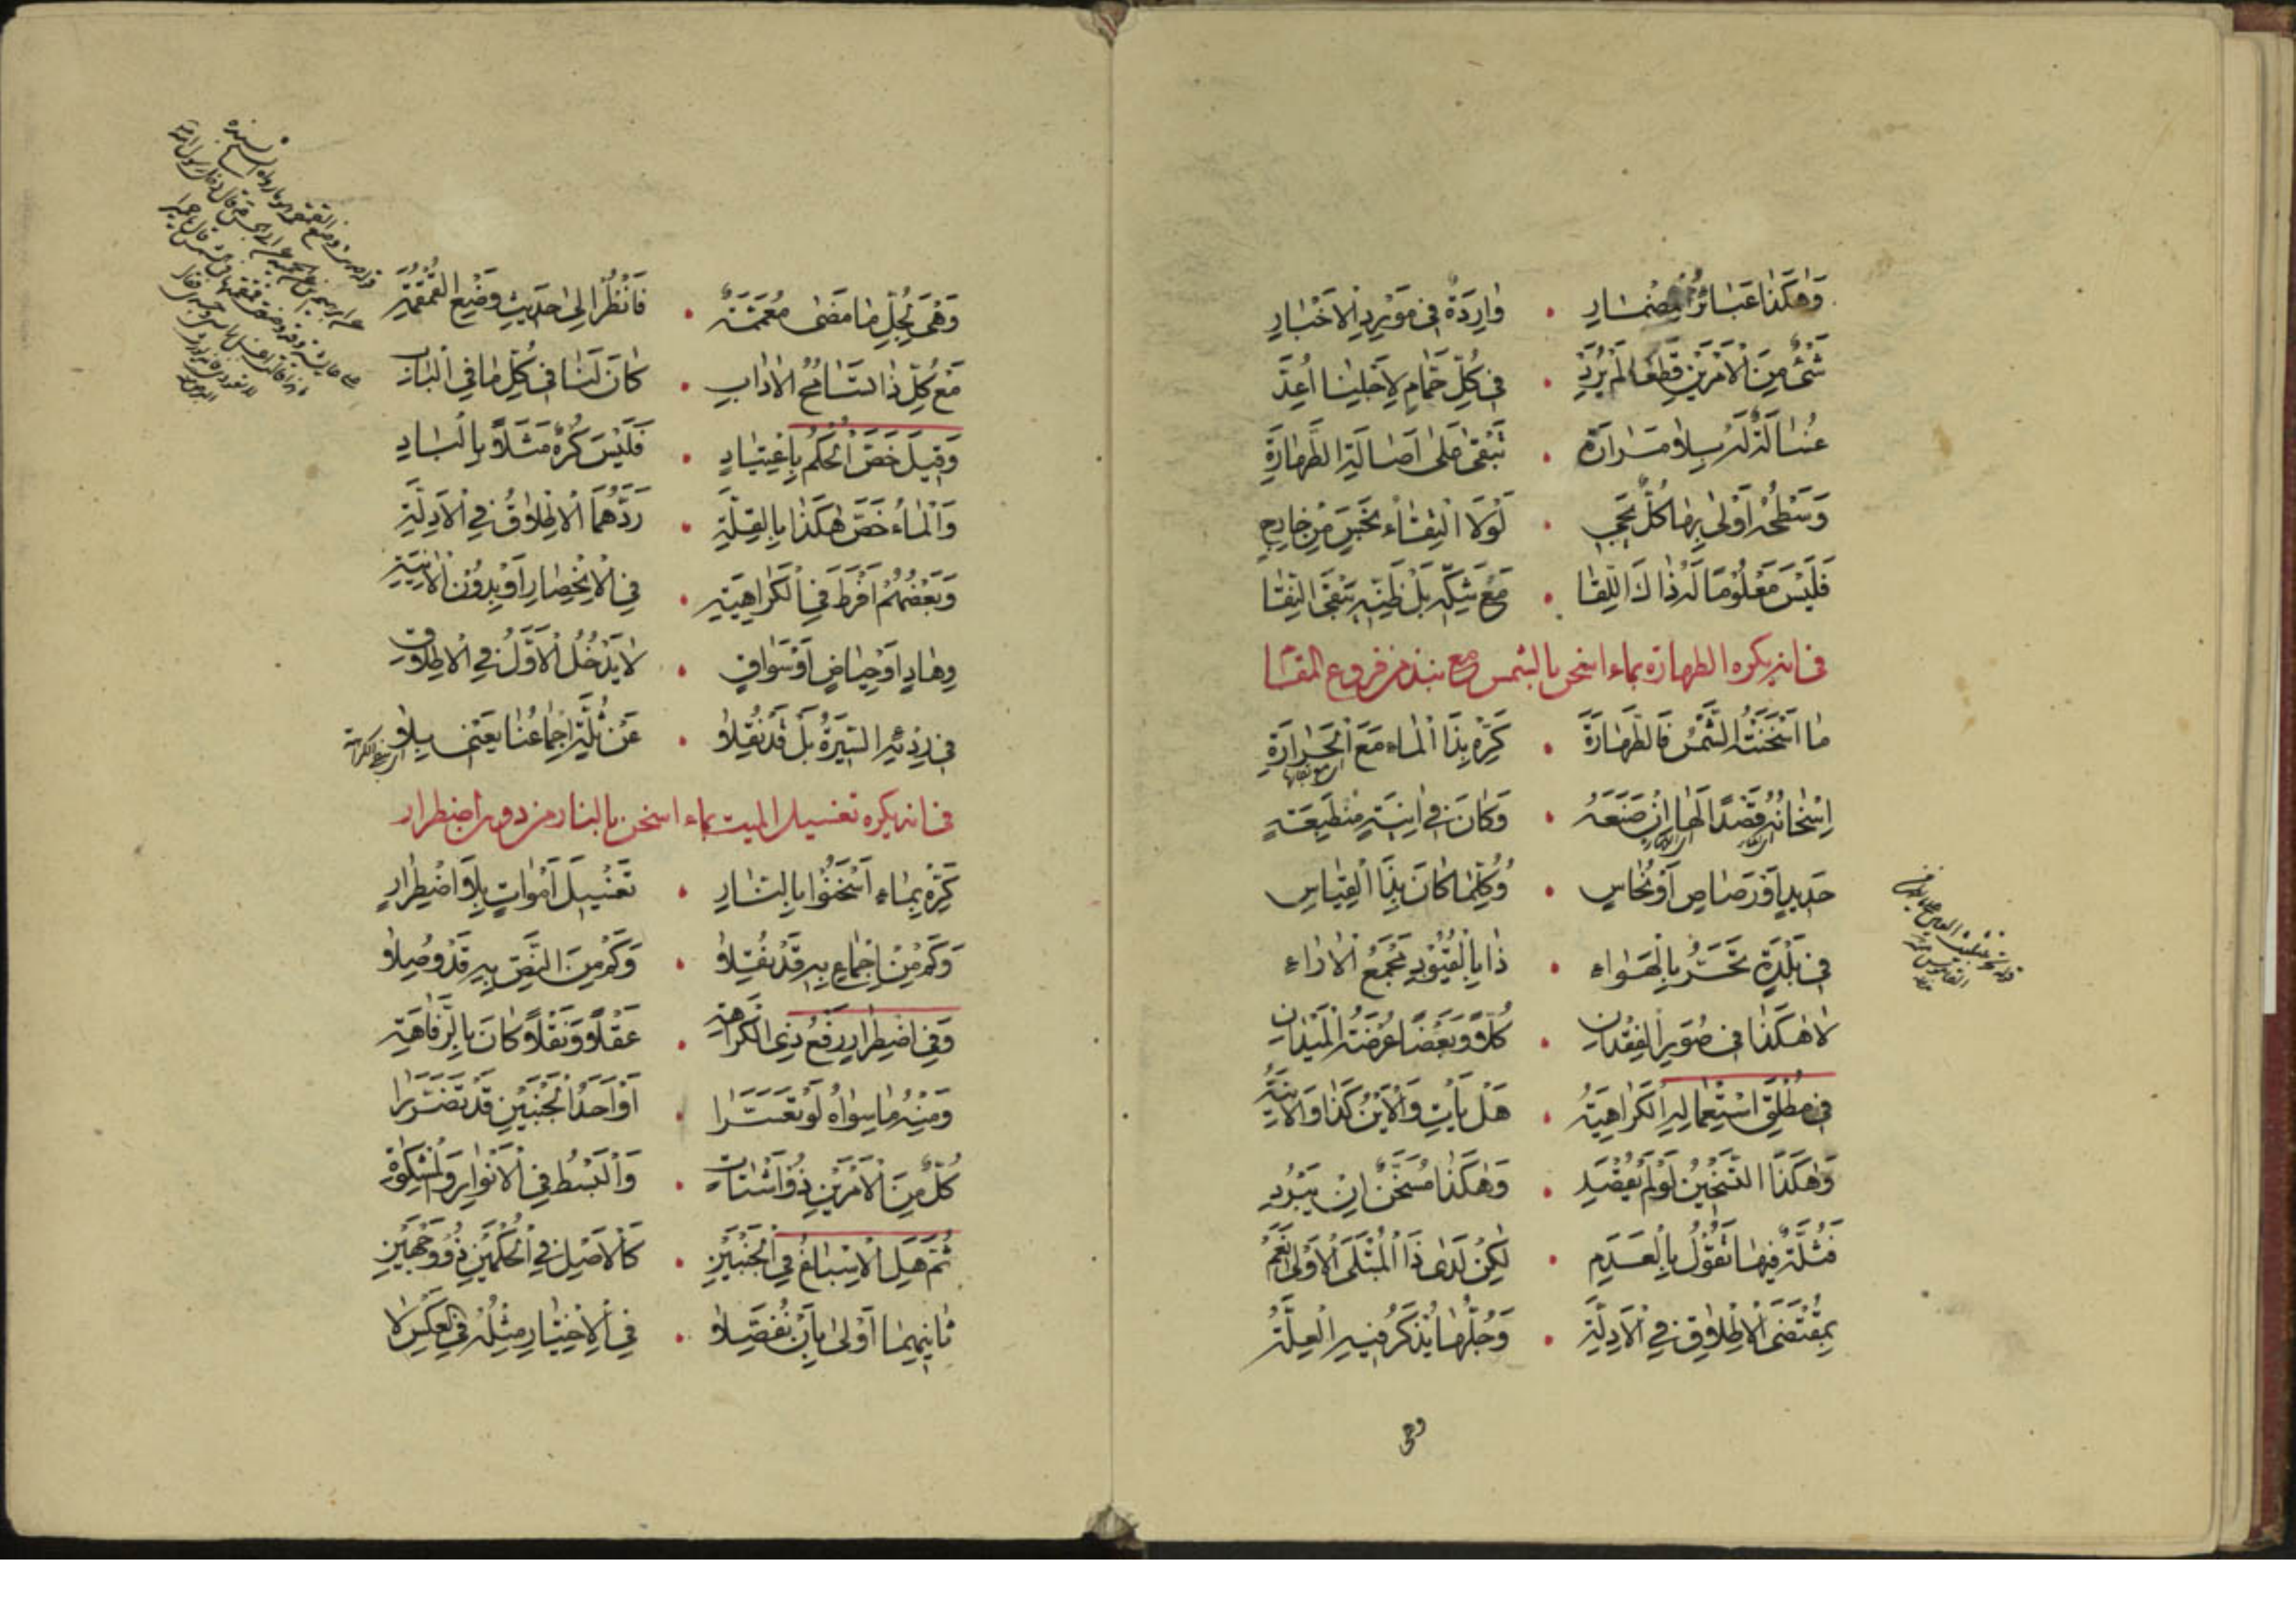 وَهٰكَذٰا عَبٰائِرُ مِضْمٰارِ . وٰارِدَةٌ فى مَوْرِدِ الْاَخْبٰارِ
شَىْءٌ مِنَ الْاَمْرَيْنِ قَطْعًا لَمْ يُرَدْ . فى كُلِّ حَمّٰامٍ لِاَجْلِنٰا اُعِدَّ
غُسٰالَةٌ لَهُ بِلاٰ مَرٰارَة . تَبْقىٰ عَلىٰ اَصٰالَةِ الطَّهٰارَةِ
وَسَطْحُهُ اَوْلىٰ بِهٰا كُلٌّ يَجى . لَوْلَا الْتِقٰاءُ نَجَسٍ مِنْ خٰارِجٍ
فَلَيْسَ مَعْلُومًا لَهُ ذٰاكَ اللِّقٰا . مَعْ شَكِّهِ بَلْ ظَنِّهِ يَبْقَى النِّقٰا
فى انه يكره الطهارة بماء اسخن بالشمس مع نبذ من فروع المقام
مٰا اَسْخَنَتْهُ الشَّمْسُ فَالطَّهٰارَةَ . كَرِّهْ بِذَا الْمٰاءِ مَعَ الْحَرٰارَةِ
اِسْخٰانُهُ قَصْدًا لَهٰا اِنْ صَنَعَهُ . وَكٰانَ فى اٰنِيَةٍ مُنْطَبِعَةٍ
حَديدٍ اَوْ رَصٰاصٍ اَوْ نُحٰاسٍ . وَكُلَّمٰا كٰانَ بِذَا الْقِيٰاسِ
فى بَلْدَةٍ تَحَرُّ بِالْهَوٰاءِ . ذٰا بِالْقُيُودِ مَجْمَعُ الْاٰرٰاءِ
لاٰ هٰكَذٰا فى صُوَرِ الْفِقْدٰانِ . كُلاًّ وَبَعْضًا عُرْضَةُ الْمَيْدٰانِ
فى مُطْلَقِ اسْتِعْمٰالِهِ الْكَرٰاهِيَةُ . هَلْ يَأْتِ وَالْاَيْنُ كَذٰا وَالْاٰنِيَةُ
وَهٰكَذَا التَّسْخينُ لَوْ لَمْ يُقْصَدِ . وَهٰكَذٰا مُسَخَّنٌ اِنْ يَبْرُدِ
فَثُلَّةٌ فيهٰا تَقُولُ بِالْعَدَمِ . لٰكِنْ لَدىٰ ذَا الْمُبْتَلَى الْاَوْلىٰ نَعَمْ
بِمُقْتَضَى الْاِطْلاٰقِ فِى الْاَدِلَّةِ . وَجُلُّهٰا يُذْكَرُ فيهِ الْعِلَّةُ
وهى
وَهْىَ لِجُلِّ مٰا مَضىٰ مُعَمَّمَةٌ . فَانْظُرْ اِلىٰ حَديثِ وَضْعِ الْقُمْقُمَةِ
مَعْ كُلِّ ذَا التَّسٰامُحُ الْاٰدٰابِ . كٰانَ لَنٰا فى كُلِّ مٰا فِى الْبٰابِ
وَقيلَ خَصَّ الْحُكْمُ بِاعْتِيٰادٍ . فَلَيْسَ كُرْهٌ مَثَلاً بِالْبٰادِ
وَالْمٰاءُ خَصَّ هٰكَذٰا بِالْقِلَّةِ . رَدَّهُمَا الْاِطْلاٰقُ فِى الْاَدِلَّةِ
وَبَعْضُهُمْ اَفْرَطَ فِى الْكَرٰاهِيَةِ . فِى الْاِنْحِصٰارِ اَوْ بِدُونِ الْاٰنِيَةِ
وِهٰادٍ اَوْ حِيٰاضٍ اَوْ سَوٰاقٍ . لاٰ يَدْخُلُ الْاَوَّلُ فِى الْاِطْلاٰقِ
فى رَدِّهِ السّيرَةُ بَلْ قَدْ نُقِلاٰ . عَنْ ثُلَّةٍ اِجْمٰاعُنٰا يَعْنى بِلاٰ
فى انه يكره تغسيل الميت بماء اسخن بالنار من دون اضطرار
كَرِّهْ بِمٰاءٍ اَسْخَنُوا بِالنّٰارِ . تَغْسيلَ اَمْوٰاتٍ بِلاَ اضْطِرٰارٍ
وَكَمْ مِنْ اِجْمٰاعٍ بِهِ قَدْ نُقِلاٰ . وَكَمْ مِنَ النَّصِّ بِهِ قَدْ وُصِلاٰ
وَفِى اضْطِرٰارٍ رَفْعُ ذِى الْكَرٰاهَةِ . عَقْلاً وَنَقْلاً كٰانَ بِالرَّفٰاهَةِ
وَمِنْهُ مٰا سِوٰاهُ لَوْ تَعَسَّرَا . اَوْ اَحَدُ الْجَنْبَيْنِ قَدْ تَضَرَّرٰا
كُلٌّ مِنَ الْاَمْرَيْنِ ذُو اَشْتٰاتٍ . وَالْبَسْطُ فِى الْاَنْوٰارِ وَالْمِشْكٰوةِ
ثُمَّ هَلِ الْاِسْبٰاغُ فِى الْجَنْبَيْنِ . كَالْاَصْلِ فِى الْحُكْمَيْنِ ذُو وَجْهَيْنِ
ثٰانيهِمٰا اَوْلىٰ بِاَنْ نُفَصِّلاٰ . فِى الْاِخْتِيٰارِ مِثْلُهُ فِى الْعَكْسِ لاٰ